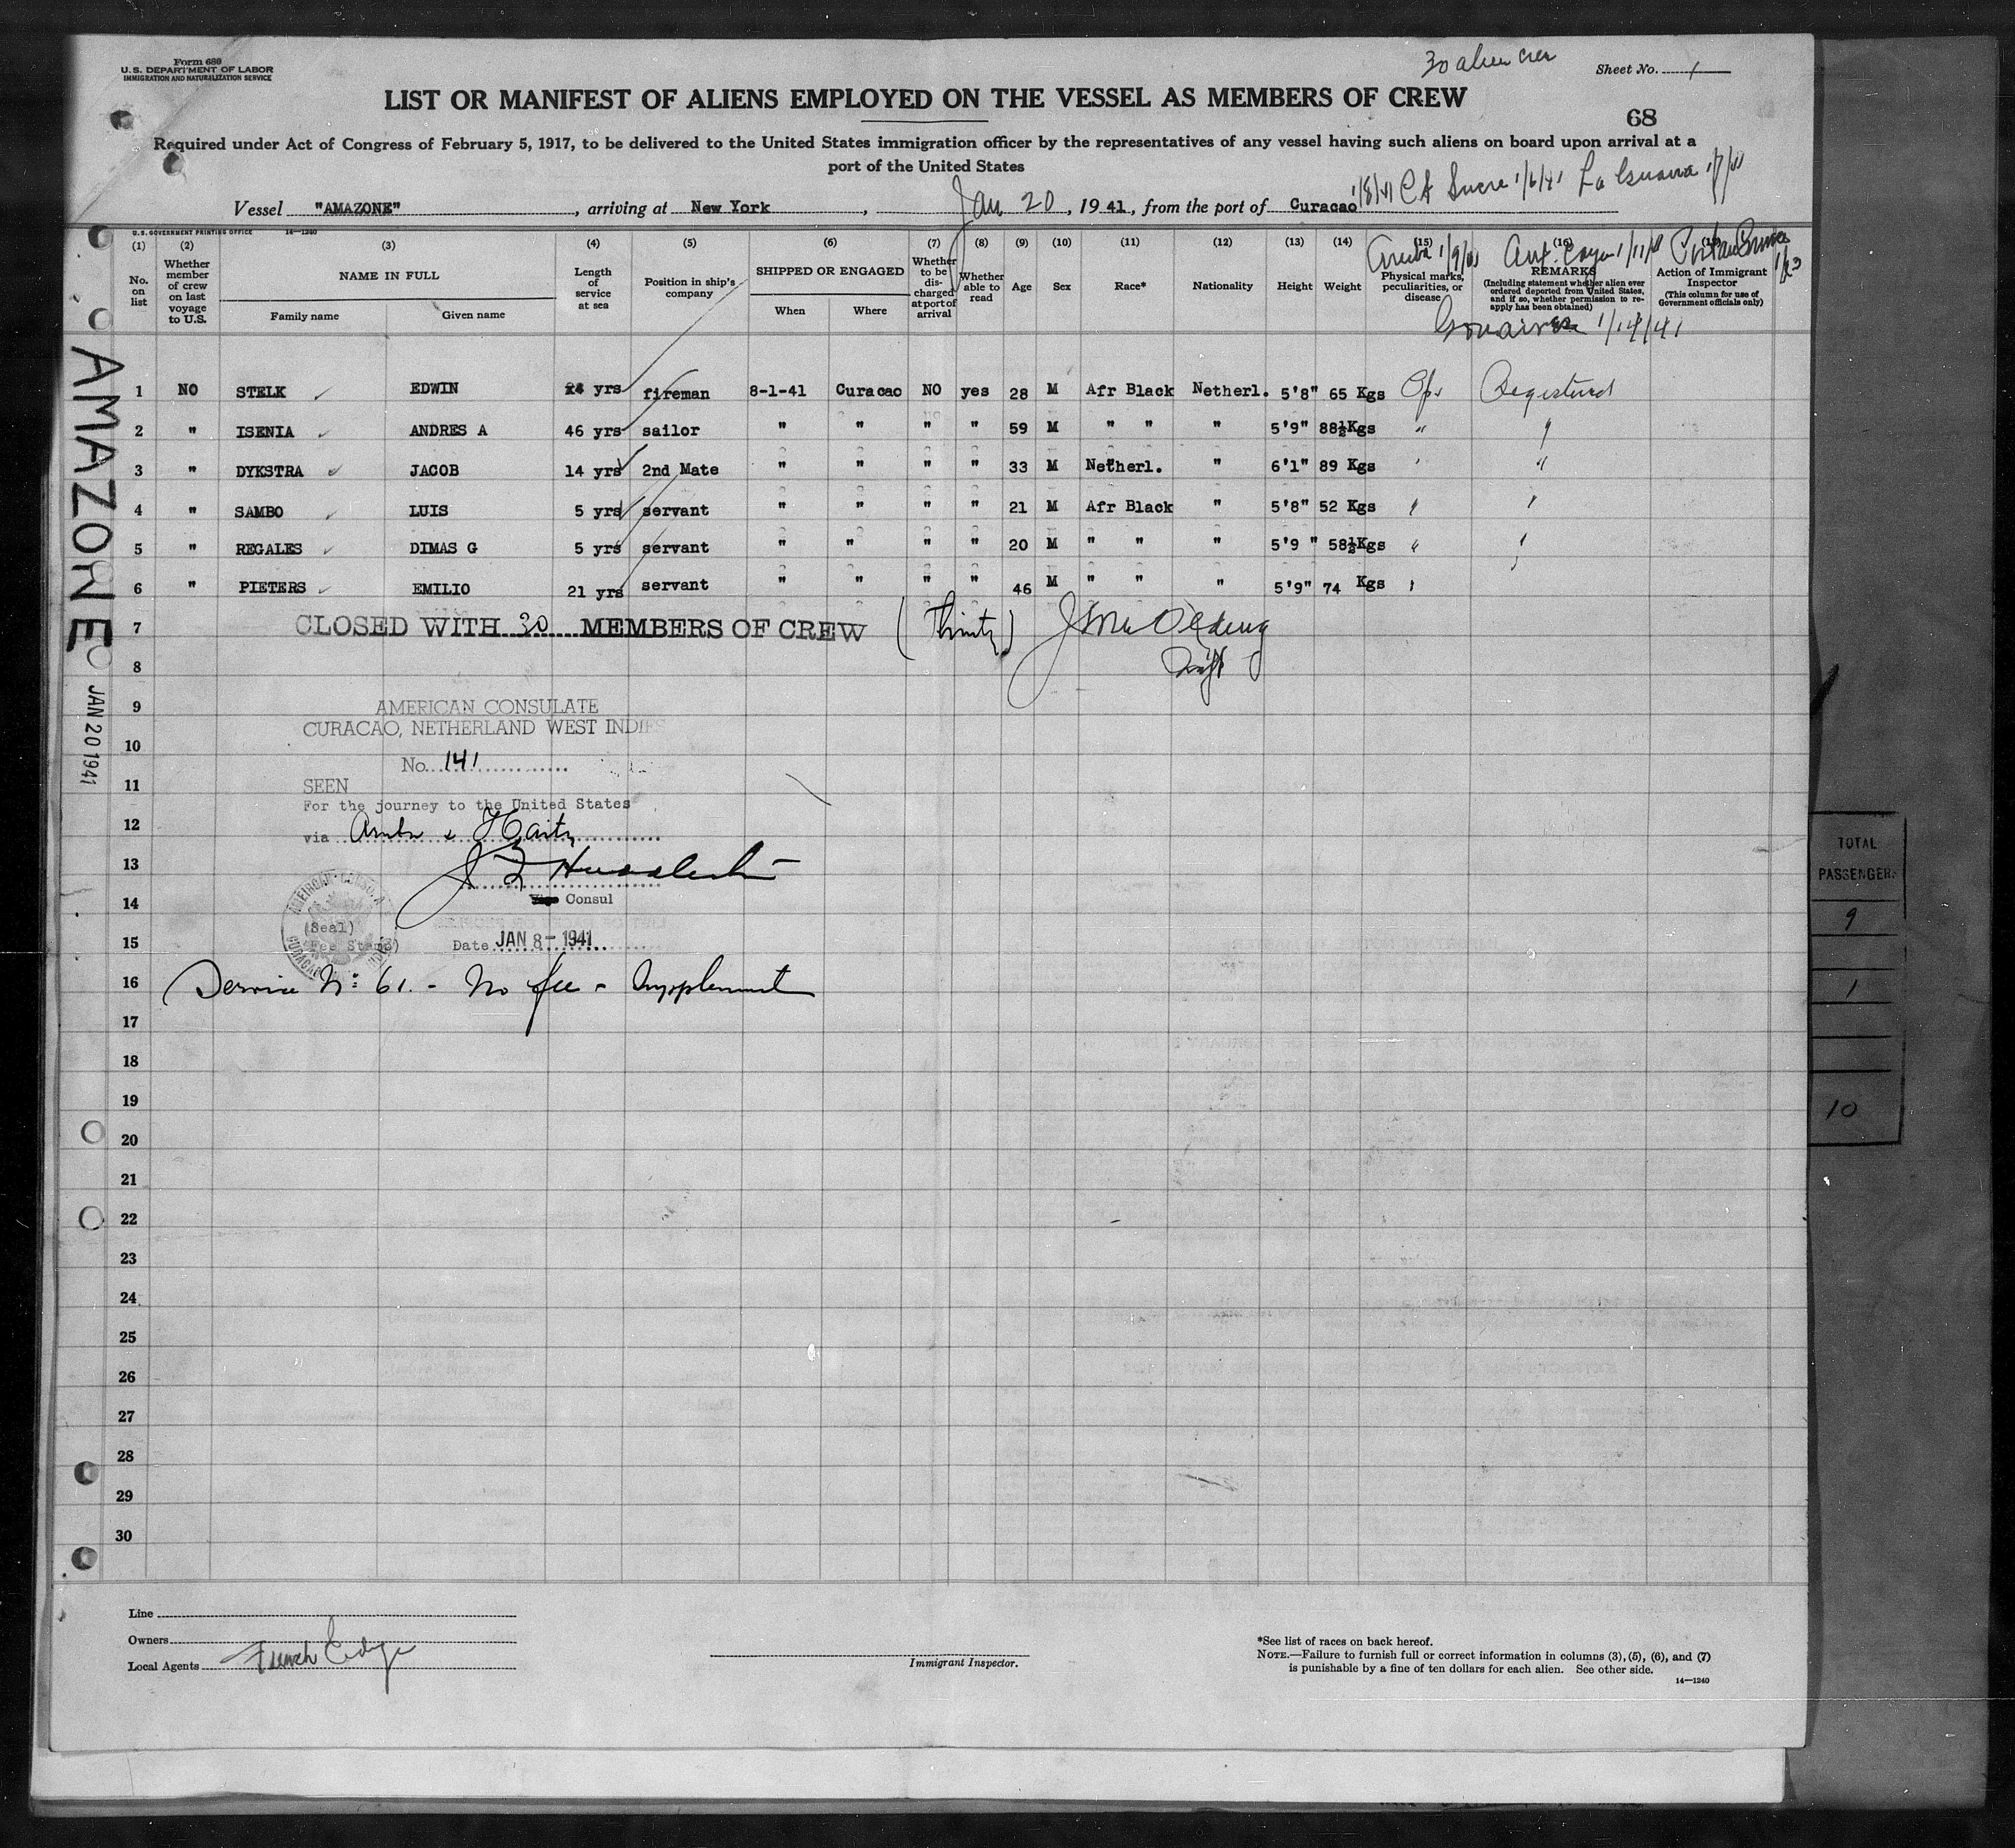 Form 680
U.S. DEPARTMENT OF LABOR
IMMIGRATION AND NATURALIZATION SERVICE
30 alien crew
Sheet No. 1
LIST OR MANIFEST OF ALIENS EMPLOYED ON THE VESSEL AS MEMBERS OF CREW
68
Required under Act of Congress of February 5, 1917, to be delivered to the United States immigration officer by the representatives of any vessel having such aliens on board upon arrival at a
port of the United States
1/8/41 Sucre 1/6/41 La Guaira 1/7/41
Vessel "AMAZONE", arriving at New York, Jan 20, 1941, from the port of Curacao
U.S. GOVERNMENT PRINTING OFFICE 14—1240
Aruba 1/9/41 1/11/41
(1) No. on list
(2) Whether member of crew on last voyage to U.S.
(3) NAME IN FULL Family name Given name
(4) Length of service at sea
(5) Position in ship's company
(6) SHIPPED OR ENGAGED When Where
(7) Whether to be discharged at port of arrival
(8) Whether able to read
(9) Age
(10) Sex
(11) Race*
(12) Nationality
(13) Height
(14) Weight
(15) Physical marks, peculiarities, or disease
(16) REMARKS (Including statement whether alien ever ordered deported from United States, and if so, whether permission to reapply has been obtained)
Action of Immigrant Inspector (This column for use of Government officials only)
Gonaives 1/14/41
1 NO STELK EDWIN yrs fireman 8-1-41 Curacao NO yes 28 M Afr Black Netherl. 5'8" 65 Kgs Registered
2 " ISENIA ANDRES A 46 yrs sailor " " " " 59 M " " " 5'9" 88½Kgs " "
3 " DYKSTRA JACOB 14 yrs 2nd Mate " " " " 33 M Netherl. " 6'1" 89 Kgs " "
4 " SAMBO LUIS 5 yrs servant " " " " 21 M Afr Black " 5'8" 52 Kgs " "
5 " REGALES DIMAS G 5 yrs servant " " " " 20 M " " " 5'9 " 58½Kgs " "
6 " PIETERS EMILIO 21 yrs servant " " " " 46 M " " " 5'9" 74 Kgs "
7 CLOSED WITH 30 MEMBERS OF CREW (Thirty)
8
9
10
11
12
13
14
15
16
17
18
19
20
21
22
23
24
25
26
27
28
29
30
AMAZONE
JAN 20 1941
AMERICAN CONSULATE
CURACAO, NETHERLAND WEST INDIES
No. 141
SEEN
For the journey to the United States
via Aruba & Haiti
Vice Consul
(Seal)
Fee Stamp)
Date JAN 8 - 1941
Service No: 61. - No fee - Supplement
TOTAL
PASSENGERS
9
1
10
Line
Owners
Local Agents
Immigrant Inspector.
*See list of races on back hereof.
NOTE.—Failure to furnish full or correct information in columns (3), (5), (6), and (7)
is punishable by a fine of ten dollars for each alien. See other side.
14—1240